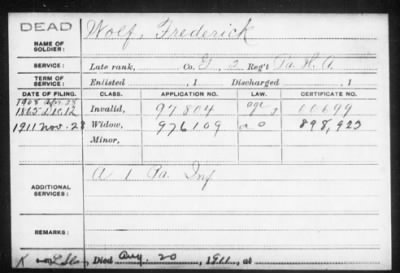 DEAD
Wolf, Frederick
NAME OF
SOLDIER:
SERVICE:
Late rank, Co. G, 2 Reg't Pa. H. A
TERM OF
SERVICE:
Enlisted , 1 Discharged , 1
DATE OF FILING. CLASS. APPLICATION NO. LAW. CERTIFICATE NO.
1908 Apr. 28
1865 Invalid, 97804 60699
1911 Nov. 28 Widow, 976109 898,923
Minor,
ADDITIONAL
SERVICES:
A 1 Pa. Inf
REMARKS:
Died Aug. 20, 1911, at